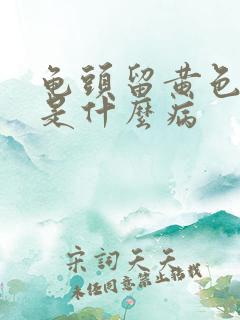 龟頭留黃色
是什麼病
宋詞天天
未经同意禁止转载